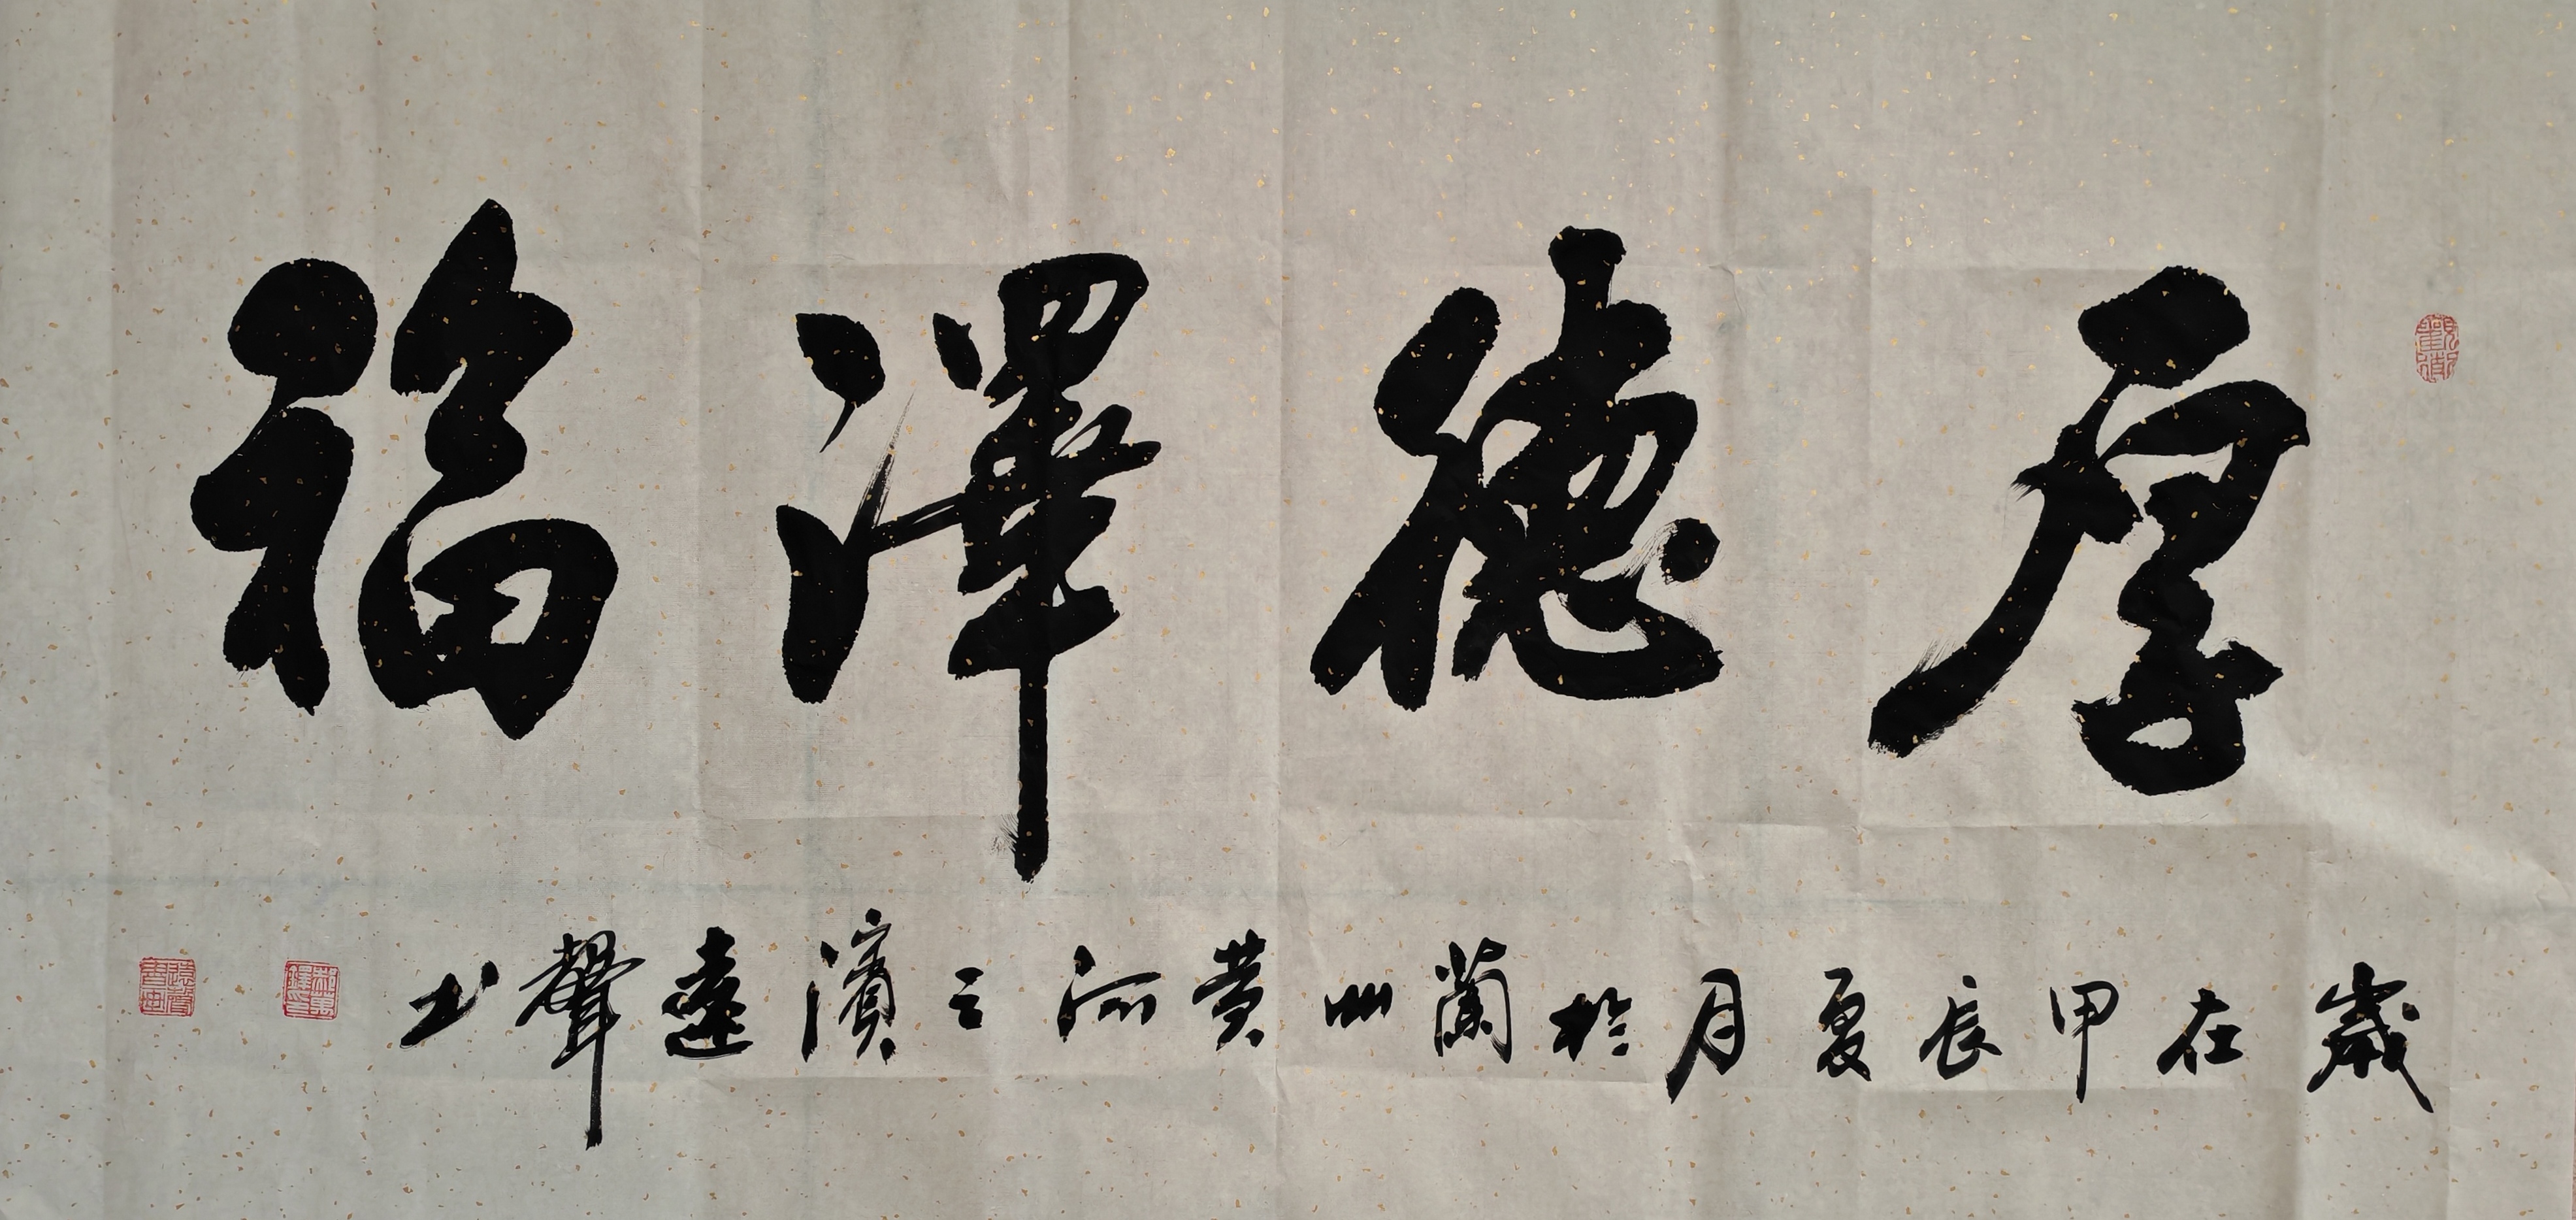 厚德澤福
歲在甲辰夏月於蘭州黄河之濱遠聲书